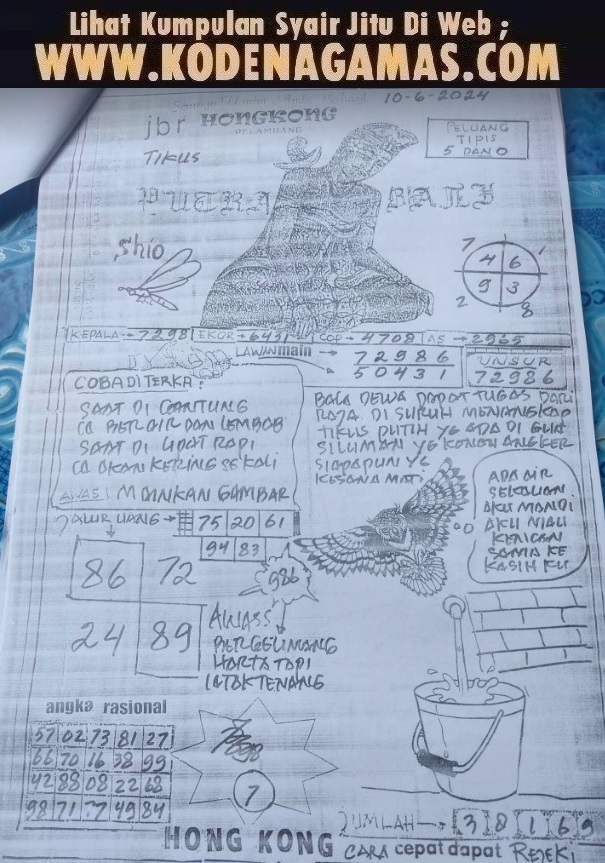 Lihat Kumpulan Syair Jitu Di Web ;
WWW.KODENAGAMAS.COM
10-6-2024
jbr HONGKONG
TIKUS
PELUANG
TIPIS
5 DAN 0
Shio
7 1
4 6
9 3
2 8
KEPALA → 7298 EKOR → 6431 COP → 4708 AS → 2965
LAWAN main → 72986
50431
UNSUR
72986
COBA DI TERKA :
SAAT DI GANTUNG
IA BERAIR DAN LEMBAB
SAAT DI LIPAT RAPI
IA AKAN KERING SEKALI
AWAS! MAINKAN GAMBAR
BALA DEWA DAPAT TUGAS DARI
RAJA DI SURUH MENANGKAP
TIKUS PUTIH YG ADA DI GUA
SILUMAN YG KONON ANGKER
SIAPAPUN YG
KESANA MATI
ADA AIR
SEKALIAN
AKU MANDI
AKU MAU
KENCAN
SAMA KE
KASIH KU
JALUR UANG → 75 20 61
94 83
86 72
24 89
986
AWASS
BERGELIMANG
HARTA TAPI
TAK TENANG
angka rasional
57 02 73 81 27
66 70 16 38 99
42 88 08 22 68
98 71 77 49 84
7
JUMLAH → 3 8 1 6 9
HONG KONG CARA cepat dapat REJEKI